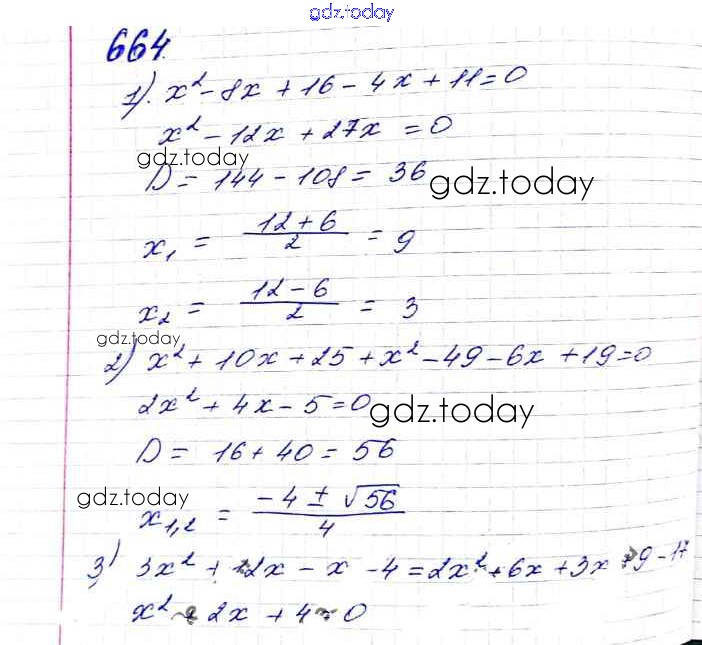 gdz.today
664.
1). x² - 8x + 16 - 4x + 11 = 0
x² - 12x + 27x = 0
gdz.today
D = 144 - 108 = 36
gdz.today
x₁ = (12 + 6)/2 = 9
x₂ = (12 - 6)/2 = 3
gdz.today
2) x² + 10x + 25 + x² - 49 - 6x + 19 = 0
2x² + 4x - 5 = 0
gdz.today
D = 16 + 40 = 56
gdz.today
x₁,₂ = (-4 ± √56)/4
3) 3x² + 12x - x - 4 = 2x² + 6x + 3x + 9 - 17
x² + 2x + 4 = 0